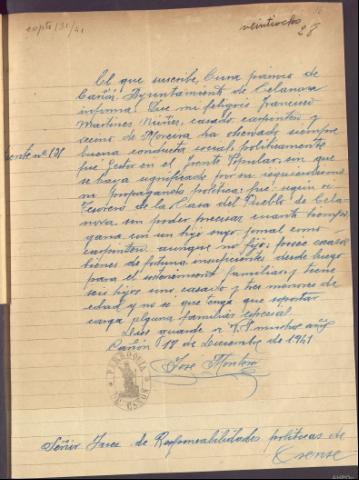 expte 131/41
veintiocho
28
El que suscribe, Cura párroco de
Cañón, Ayuntamiento de Celanova
informa: Que mi feligrés Francisco
Martínez Núñez, casado, carpintero y
vecino de Moreira ha observado siempre
buena conducta social; politicamente
fué Gestor en el Frente Popular, sin que
se haya significado por su
ni propaganda política; fué según
Tesorero de la Casa del Pueblo de Cela-
nova sin poder precisar cuanto tiempo,
gana con un hijo suyo jornal como
carpintero aunque no fijo; posee
bienes de fortuna insuficientes desde luego
para el sostenimiento familiar y tiene
seis hijos uno casado y tres menores de
edad y no sé que tenga que soportar
carga alguna familiar especial.
Dios guarde a V.S. muchos años
Cañón 17 de Diciembre de 1941
José Montero
PARROQUIA DE CAÑON
Señor Juez de Responsabilidades políticas de
Orense